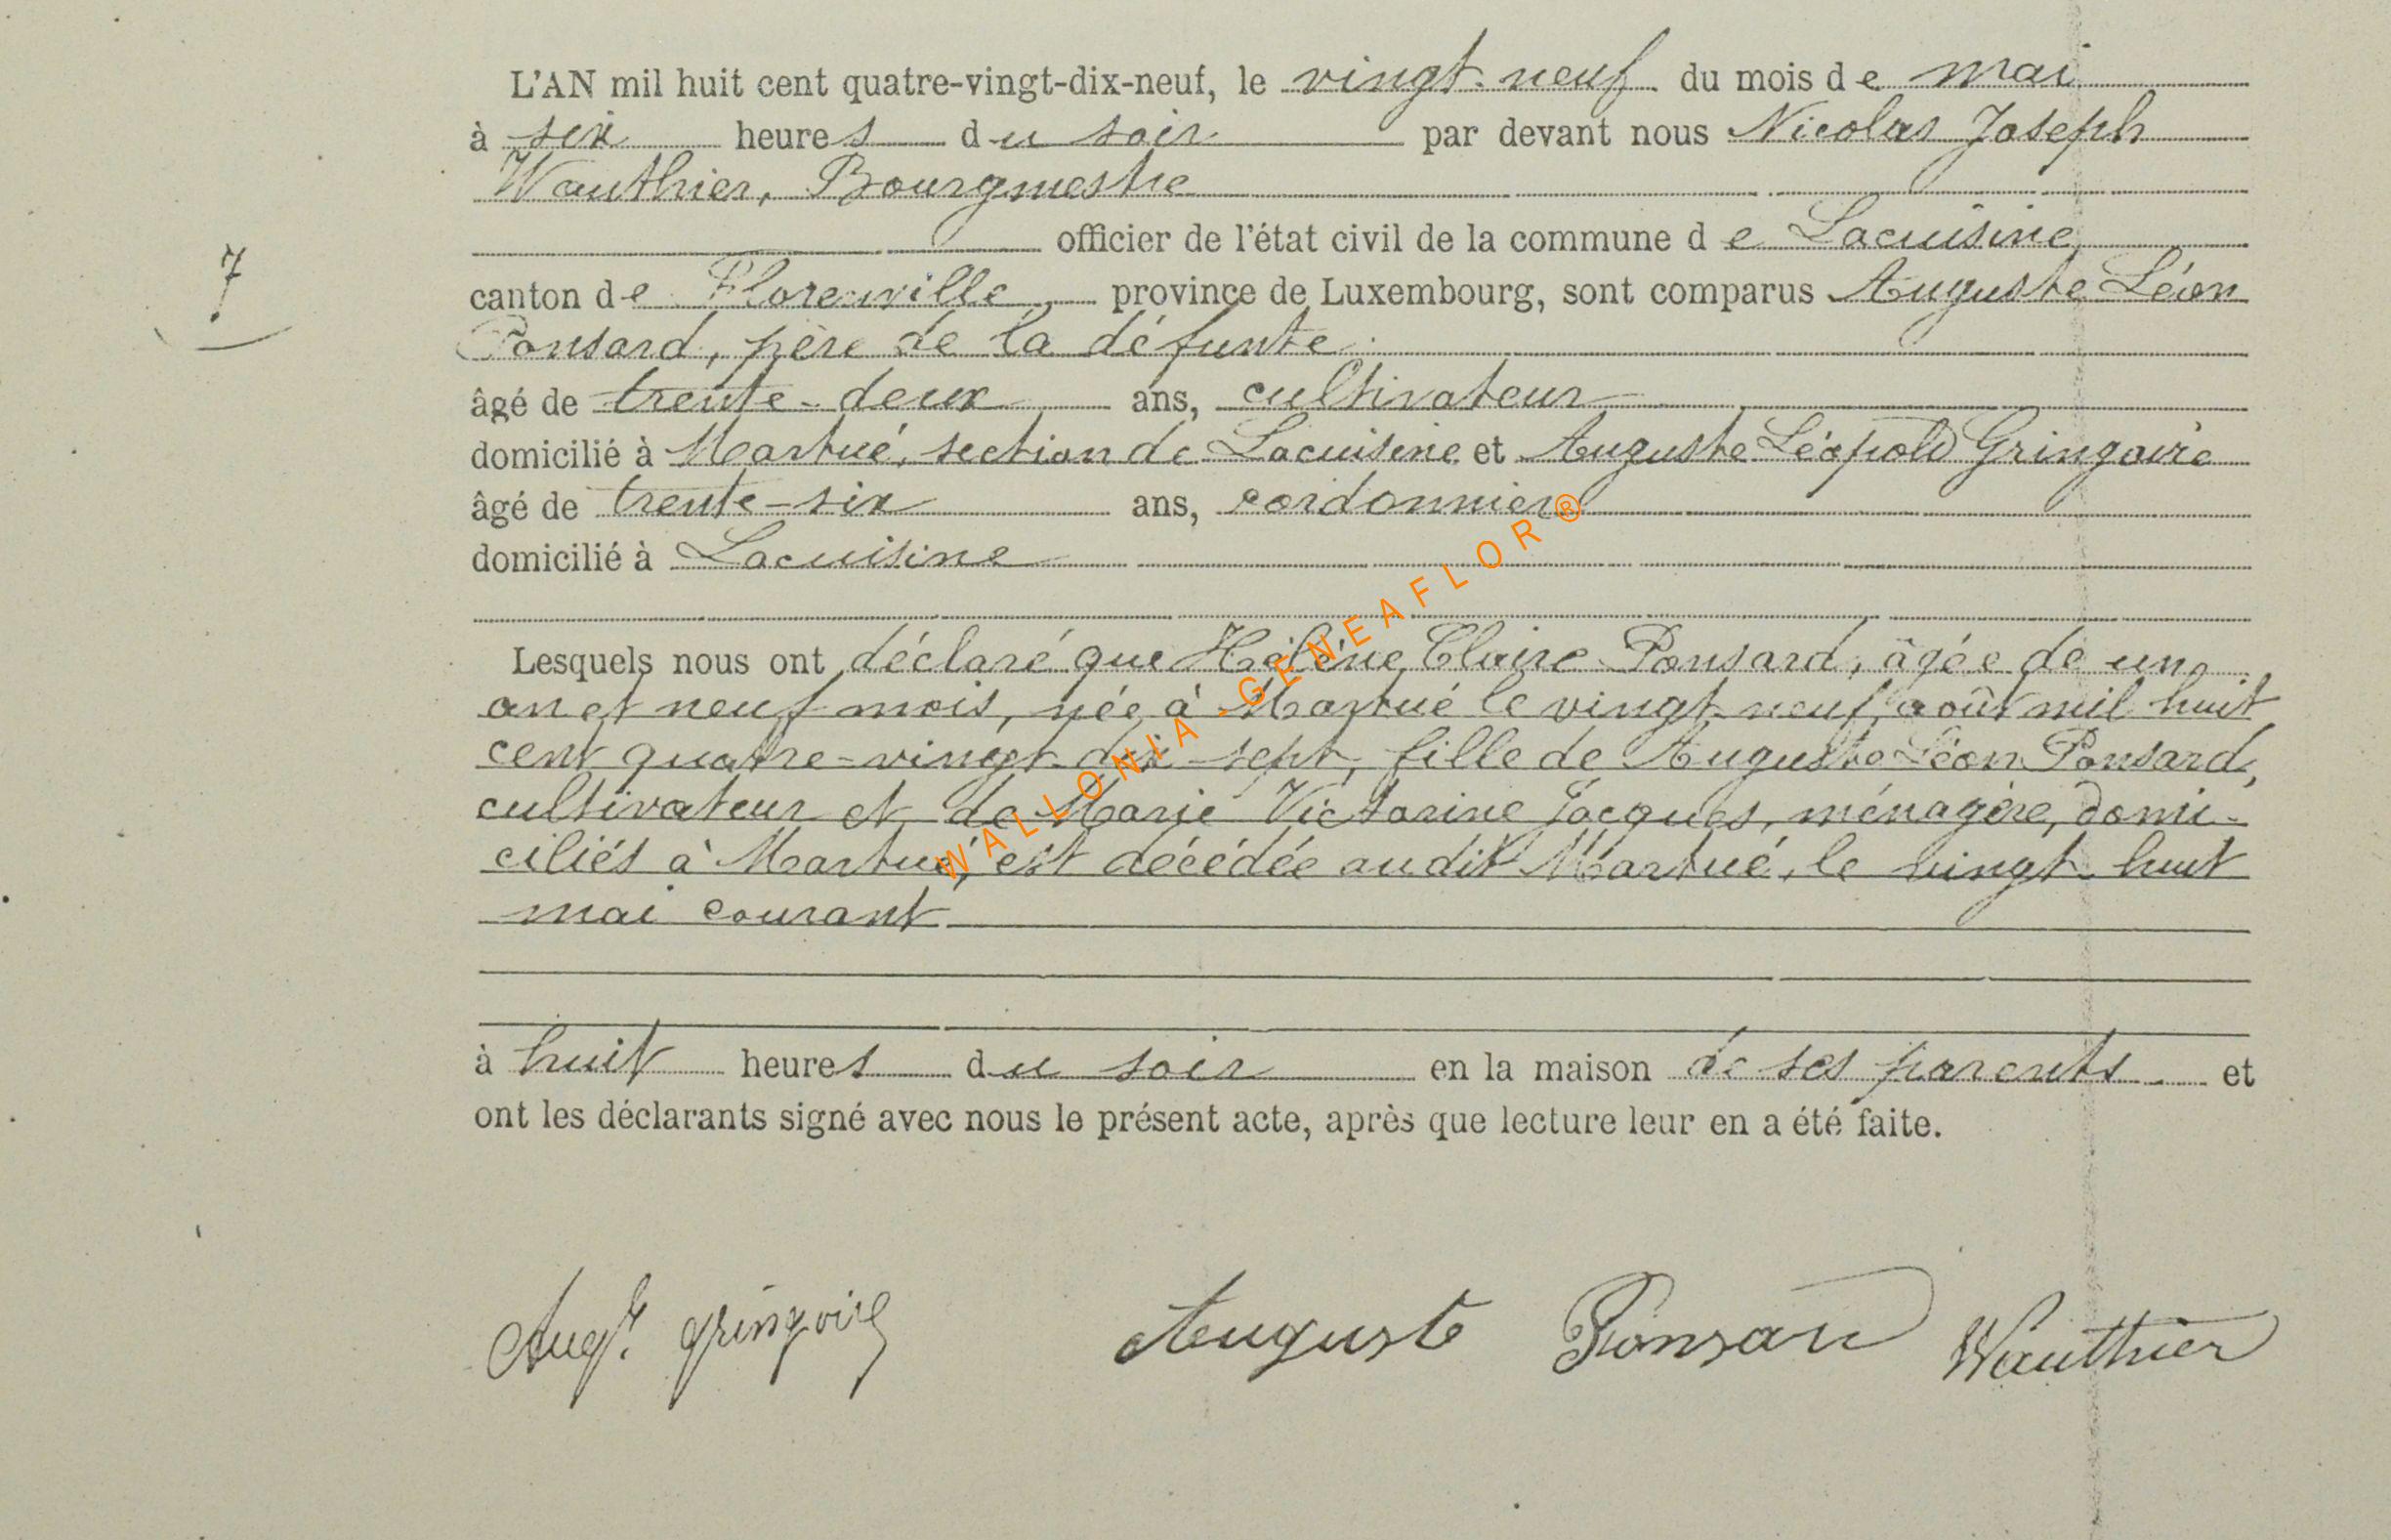 L'AN mil huit cent quatre-vingt-dix-neuf, le vingt-neuf du mois de mai
à six heures du soir par devant nous Nicolas Joseph
Wauthier, Bourgmestre
officier de l'état civil de la commune de Lacuisine
7
canton de Florenville, province de Luxembourg, sont comparus Auguste Léon
Ponsard, père de la défunte
âgé de trente-deux ans, cultivateur
domicilié à Martué, section de Lacuisine et Auguste Léopold Gringoire
âgé de trente-six ans, cordonnier
domicilié à Lacuisine
Lesquels nous ont déclaré que Hélène Claire Ponsard, âgée de un
an et neuf mois, née à Martué le vingt-neuf août mil huit
cent quatre-vingt-dix-sept, fille de Auguste Léon Ponsard,
cultivateur et de Marie Victorine Jacques, ménagère, domi-
ciliés à Martué, est décédée au dit Martué, le vingt-huit
mai courant
à huit heures du soir en la maison de ses parents et
ont les déclarants signé avec nous le présent acte, après que lecture leur en a été faite.
Augte. Gringoire Auguste Ponsard Wauthier
WALLONIA-GENEAFLOR®